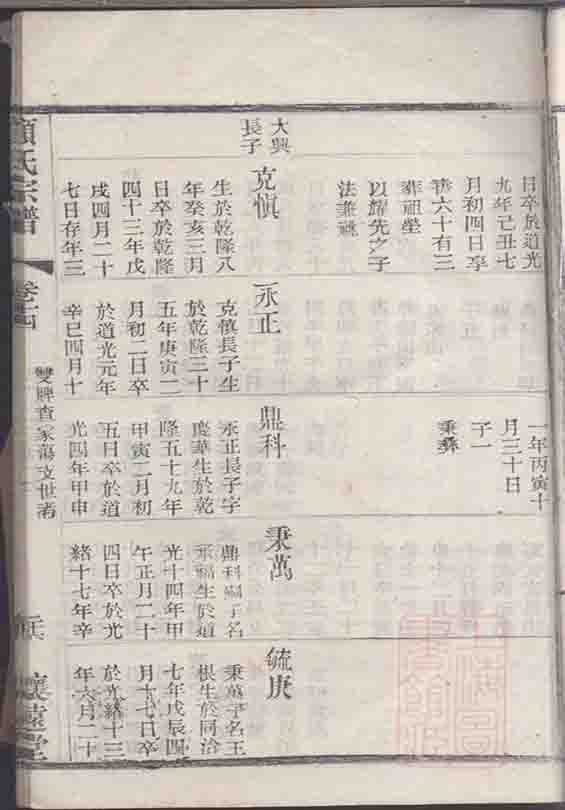 日卒於道光
九年己丑七
月初四日享
壽六十有三
葬祖塋
以耀先之子
法兼祧
大興
長子
克慎
生於乾隆八
年癸亥三月
日卒於乾隆
四十三年戊
戌四月二十
七日存年三
永正
克慎長子生
於乾隆三十
五年庚寅二
月初二日卒
於道光元年
辛巳四月十
一年丙寅十
月三十日
子一
秉彝
鼎科
永正長子字
慶華生於乾
隆五十九年
甲寅二月初
五日卒於道
光四年甲申
秉萬
鼎科嗣子名
承福生於道
光十四年甲
午正月二十
四日卒於光
緒十七年辛
毓庚
秉萬子名玉
根生於同治
七年戊辰四
月十七日卒
於光緒十三
年六月二十
氏宗譜
卷十四
雙牌查家蕩支世
懷遠堂